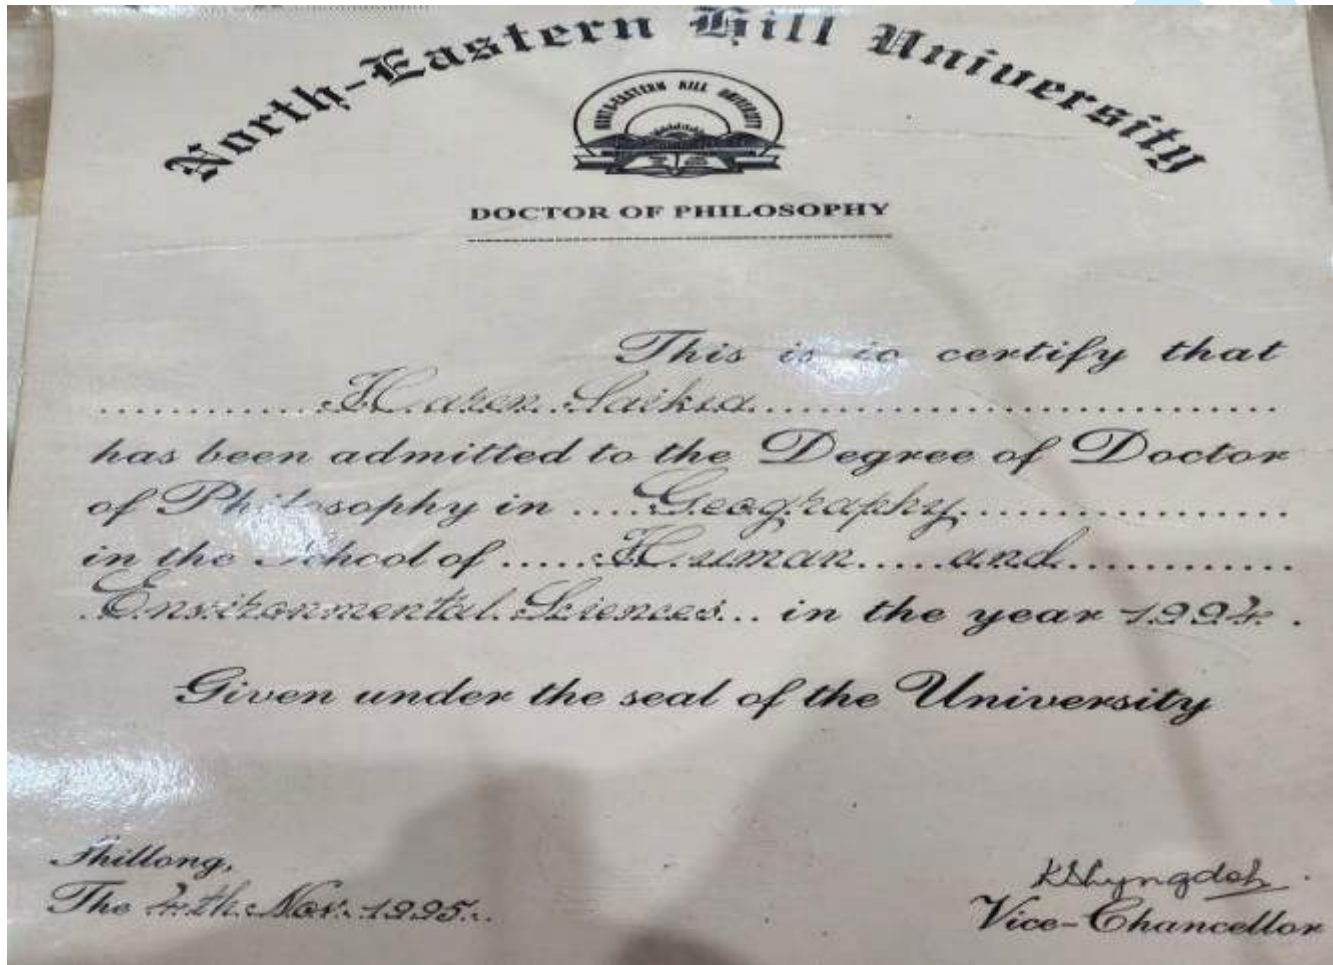 North-Eastern Hill University
NORTH-EASTERN HILL UNIVERSITY
DOCTOR OF PHILOSOPHY
This is to certify that
Haren Saikia
has been admitted to the Degree of Doctor
of Philosophy in Geography
in the School of Human and
Environmental Sciences in the year 1994.
Given under the seal of the University
Shillong,
The 4th Nov. 1995.
Vice-Chancellor